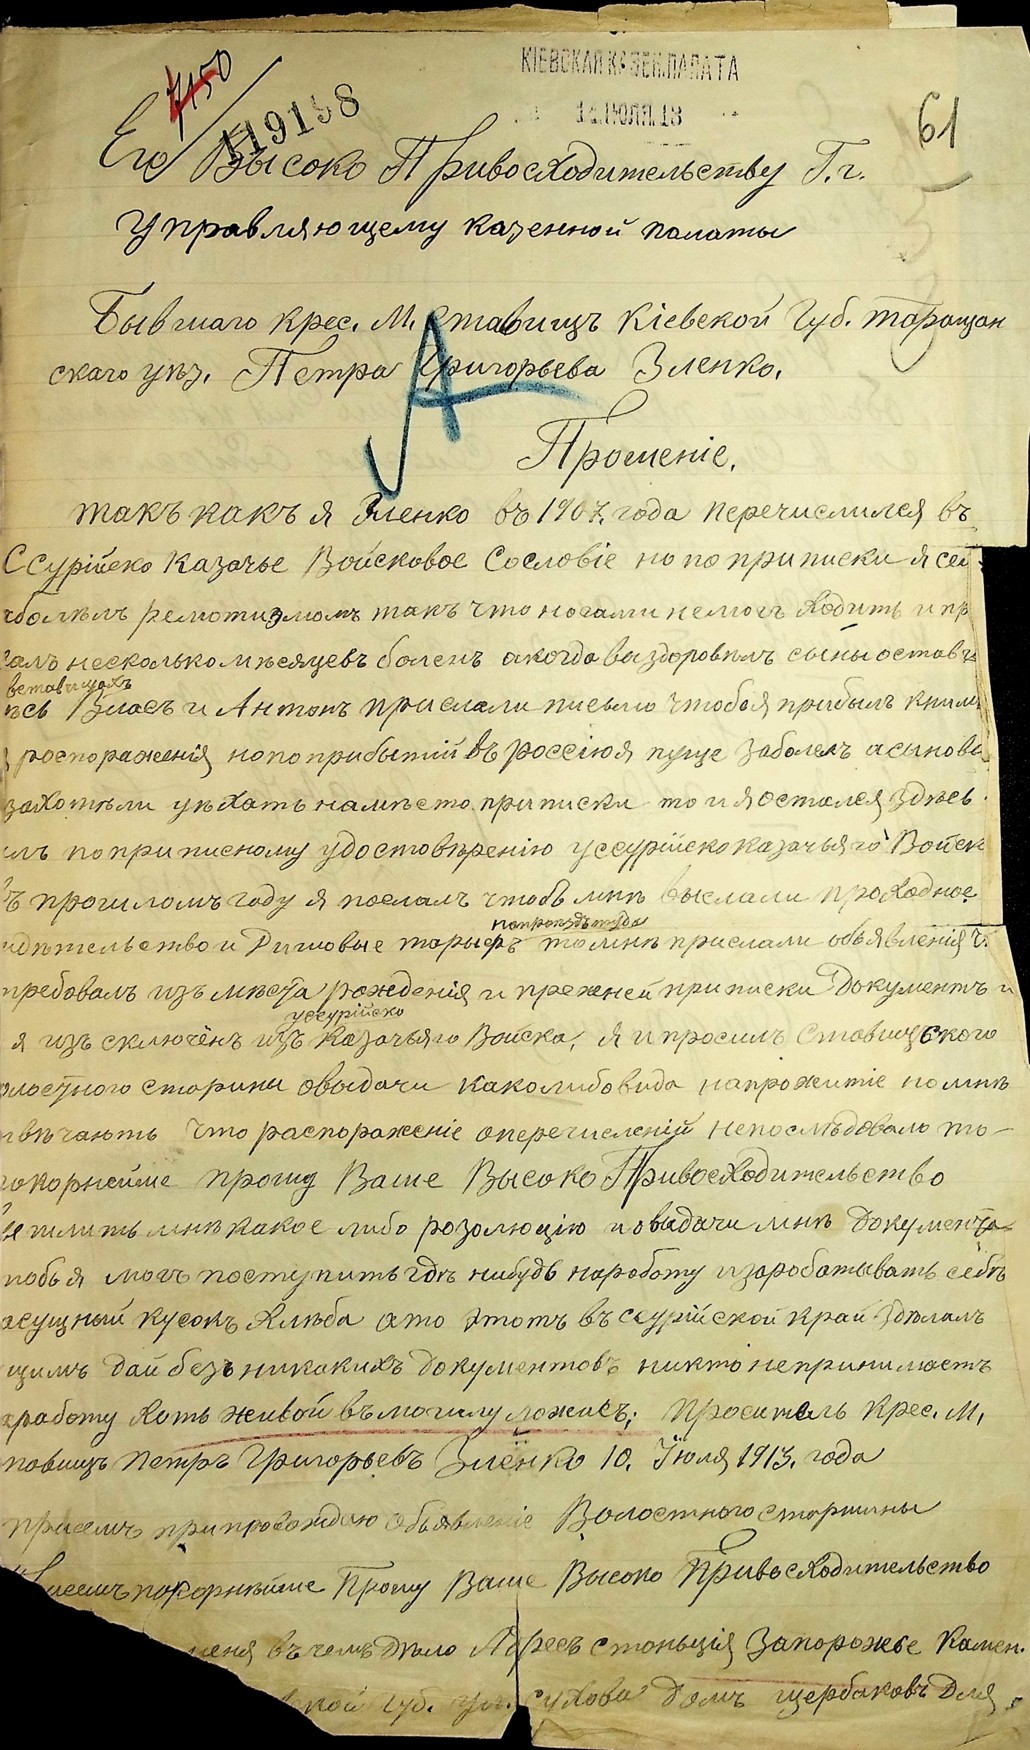 КІЕВСКАЯ КАЗЕН. ПАЛАТА
14 ИЮЛЯ. 13
7150
19198
61
Его Высоко Привосходительству Г. г.
Управляющему казенной палаты
Бывшаго крес. М. Ставищъ Кіевской Губ. Таращан
скаго уъз. Петра Григорьева Зленко.
А
Прошеніе.
такъ какъ я Зленко въ 1907 года перечислился въ
Ссурійско Казачье Войсковое Сословіе но по приписки я сей
болѣлъ ремотизмомъ такъ что ногами немогъ ходить и пр
галъ несколько мѣсяцевъ боленъ а когда ваздоровѣлъ сыны остав
вставищахъ
ись Власъ и Антонъ прислали письмо чтобы я прибылъ кним
роспоражения но по прибытій въ россію я пуще заболелъ а сыновя
захотѣли уѣхать намѣсто приписки то и я остался здѣсь.
лъ по приписному удостовѣренію уссурійско казачьяго Войск
ъ прошломъ году я послалъ чтобъ мнѣ выслали проходное
попроѣздъ туда
идѣтельство и Дишовые тарыфъ то мнѣ прислали объявления ч.
требовалъ изъ мѣста рождения и прежней приписки документъ и
уссурійско
я изъ сключёнъ изъ казачьяго Воиска, я и просилъ Ставищского
олостного старшины овыдачи каколибо вида напрожитіе но мнѣ
твѣчаютъ что распораженіе о перечисленій непослѣдовало то-
покорнейше прошу Ваше Высоко Привосходительство
мнѣ какое либо розолюцію и овыдачи мнѣ документа
тобы я могъ поступить гдѣ нибудь наработу изаробатывать себѣ
асущный кусокъ хлѣба ато этотъ въ ссурійской край здѣлалъ
щимъ дай безъ никакихъ документовъ никто непринимаетъ
аработу хоть живой въ могилу ложись; Проситель Крес. М,
тавищъ Петръ Григорьевъ Зленко 10. Іюля 1913. года
присемъ припровождаю объявленіе Волостного старшины
присемъ покорнѣише Прошу Ваше Высоко Привосходительство
меня въ чемъ дѣло Адресъ станьція Запорожье Камен.
ской Губ. ул. Сухова домъ щербаковъ Для